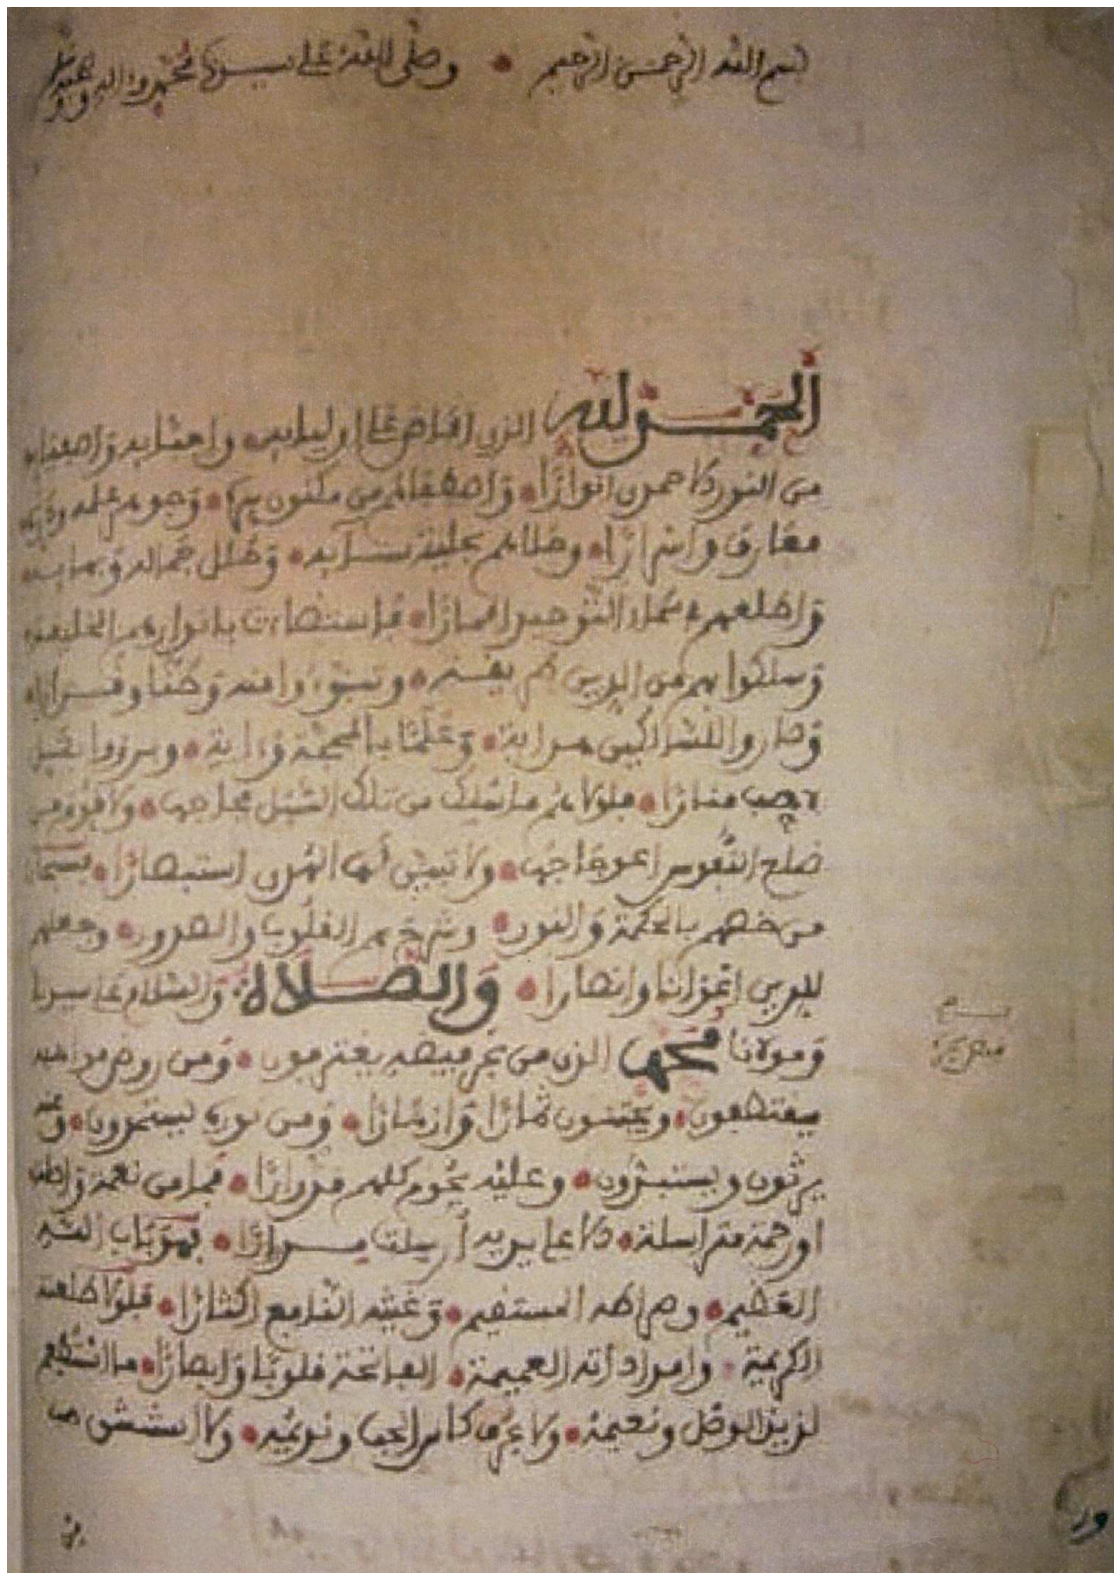 بسم الله الرحمن الرحيم • وصلى الله على سيدنا محمد وآله وصحبه
الحمد لله الذي أفاض على أوليائه • وأحبابه وأصفيائه
من النور كاحمدون أنوارا • وأطلعهم من مكنون سره • وجوهر علمه
معارف وأسرارا • وحلاهم بحلية سنائه • وحلل جماله وبهائه •
وأطلعهم في سماء التوحيد أقمارا • فاستضاءت بأنوارهم الخليقة •
وسلكوا بهم من الدين طريقة • وتبوءوا منه وطنا وقرارا •
وصاروا للسالكين هداية • وعلما بالمحجة وراية • وبرزوا
منارا • فلولاهم ما سلك من تلك السبل فجاجها • ولا قوم من
ضلع النفوس اعوجاجها • ولا تبين لها الهدى استبصارا • فسبحان
من خصهم بالحكمة والنور • وشرح بهم القلوب والصدور • وجعلهم
للدين أعوانا وأنصارا • والصلاة والسلام على سيدنا
ومولانا محمد الذي من بحر فيضه يغترفون • ومن روض مواهبه
يقتطفون • ويجتنون ثمارا وأزهارا • ومن نوره يستمدون • وعنه
يرثون ويستبشرون • وعليه يحوم كلهم مدرارا • فما من نعمة واصلة
أو رحمة متراسلة • إلا على يديه أرسلت مدرارا • فهو باب الله
العظيم • وصراطه المستقيم • وغيثه النافع أكثارا • فلولا طلعته
الكريمة • وامداداته العميمة • الفاتحة قلوبا وأبصارا • ما استطعم
لذيذ الوصل ونعيمه • ولا عرف كأس الحب ونديمه • ولا استنشق من